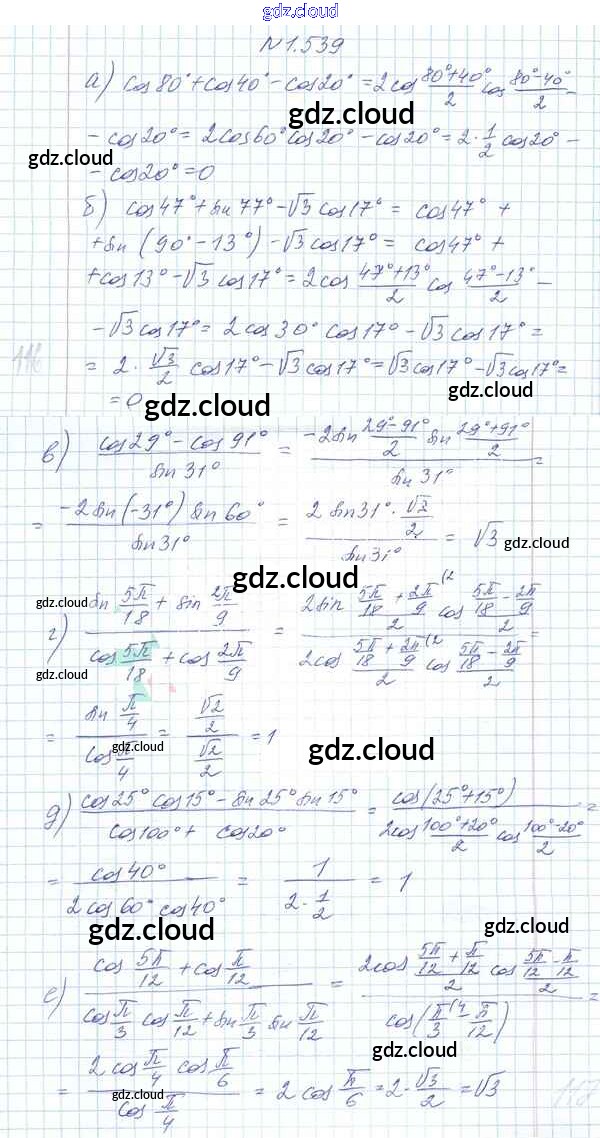 gdz.cloud
N 1.539
а) cos 80° + cos 40° - cos 20° = 2 cos (80°+40°)/2 cos (80°-40°)/2 -
gdz.cloud
- cos 20° = 2 cos 60° cos 20° - cos 20° = 2 · 1/2 cos 20° -
gdz.cloud
- cos 20° = 0
gdz.cloud
б) cos 47° + sin 77° - √3 cos 17° = cos 47° +
+ sin (90° - 13°) - √3 cos 17° = cos 47° +
+ cos 13° - √3 cos 17° = 2 cos (47°+13°)/2 cos (47°-13°)/2 -
- √3 cos 17° = 2 cos 30° cos 17° - √3 cos 17° =
= 2 · √3/2 cos 17° - √3 cos 17° = √3 cos 17° - √3 cos 17° =
gdz.cloud
= 0
gdz.cloud
в) (cos 29° - cos 91°)/(sin 31°) = (-2 sin (29°-91°)/2 sin (29°+91°)/2)/(sin 31°) =
= (-2 sin (-31°) sin 60°)/(sin 31°) = (2 sin 31° · √2/2)/(sin 31°) = √3
gdz.cloud
gdz.cloud
gdz.cloud
г) (sin 5π/18 + sin 2π/9)/(cos 5π/18 + cos 2π/9) = (2 sin (5π/18 + 2π/9 (2)/2 cos (5π/18 - 2π/9)/2)/(2 cos (5π/18 + 2π/9 (2)/2 cos (5π/18 - 2π/9)/2) =
gdz.cloud
= (sin π/4)/(cos π/4) = (√2/2)/(√2/2) = 1
gdz.cloud
gdz.cloud
д) (cos 25° cos 15° - sin 25° sin 15°)/(cos 100° + cos 20°) = cos (25°+15°)/(2 cos (100°+20°)/2 cos (100°-20°)/2) =
= (cos 40°)/(2 cos 60° cos 40°) = 1/(2 · 1/2) = 1
gdz.cloud
gdz.cloud
е) (cos 5π/12 + cos π/12)/(cos π/3 cos π/12 + sin π/3 sin π/12) = (2 cos (5π/12 + π/12)/2 cos (5π/12 - π/12)/2)/(cos (π/3 (4 - π/12)) =
= (2 cos π/4 cos π/6)/(cos π/4) = 2 cos π/6 = 2 · √3/2 = √3
gdz.cloud
gdz.cloud